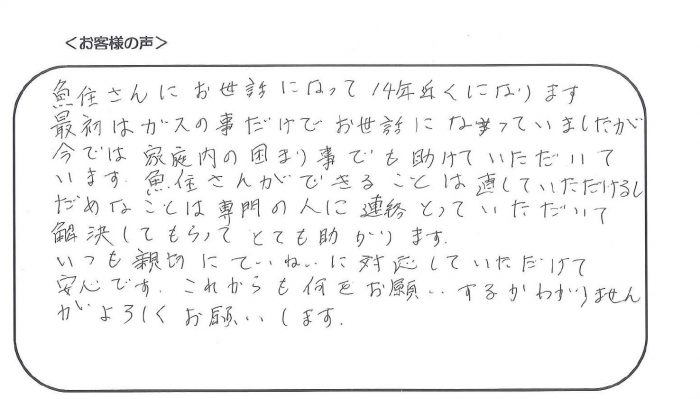 ＜お客様の声＞
魚住さんにお世話になって14年近くになります
最初はガスの事だけでお世話になっていましたが
今では家庭内の困まり事でも助けていただいて
います. 魚住さんができることは直していただけるし
だめなことは専門の人に連絡とっていただいて
解決してもらってとても助かります.
いつも親切にていねいに対応していただけて
安心です. これからも何をお願いするかわかりません
がよろしくお願いします.